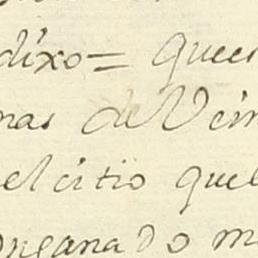 dixo = que es
nas de Vein
el citio quel
onganado m